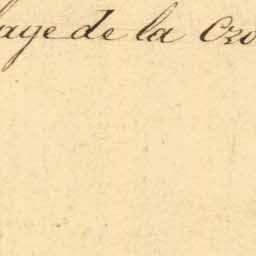 age de la Cro